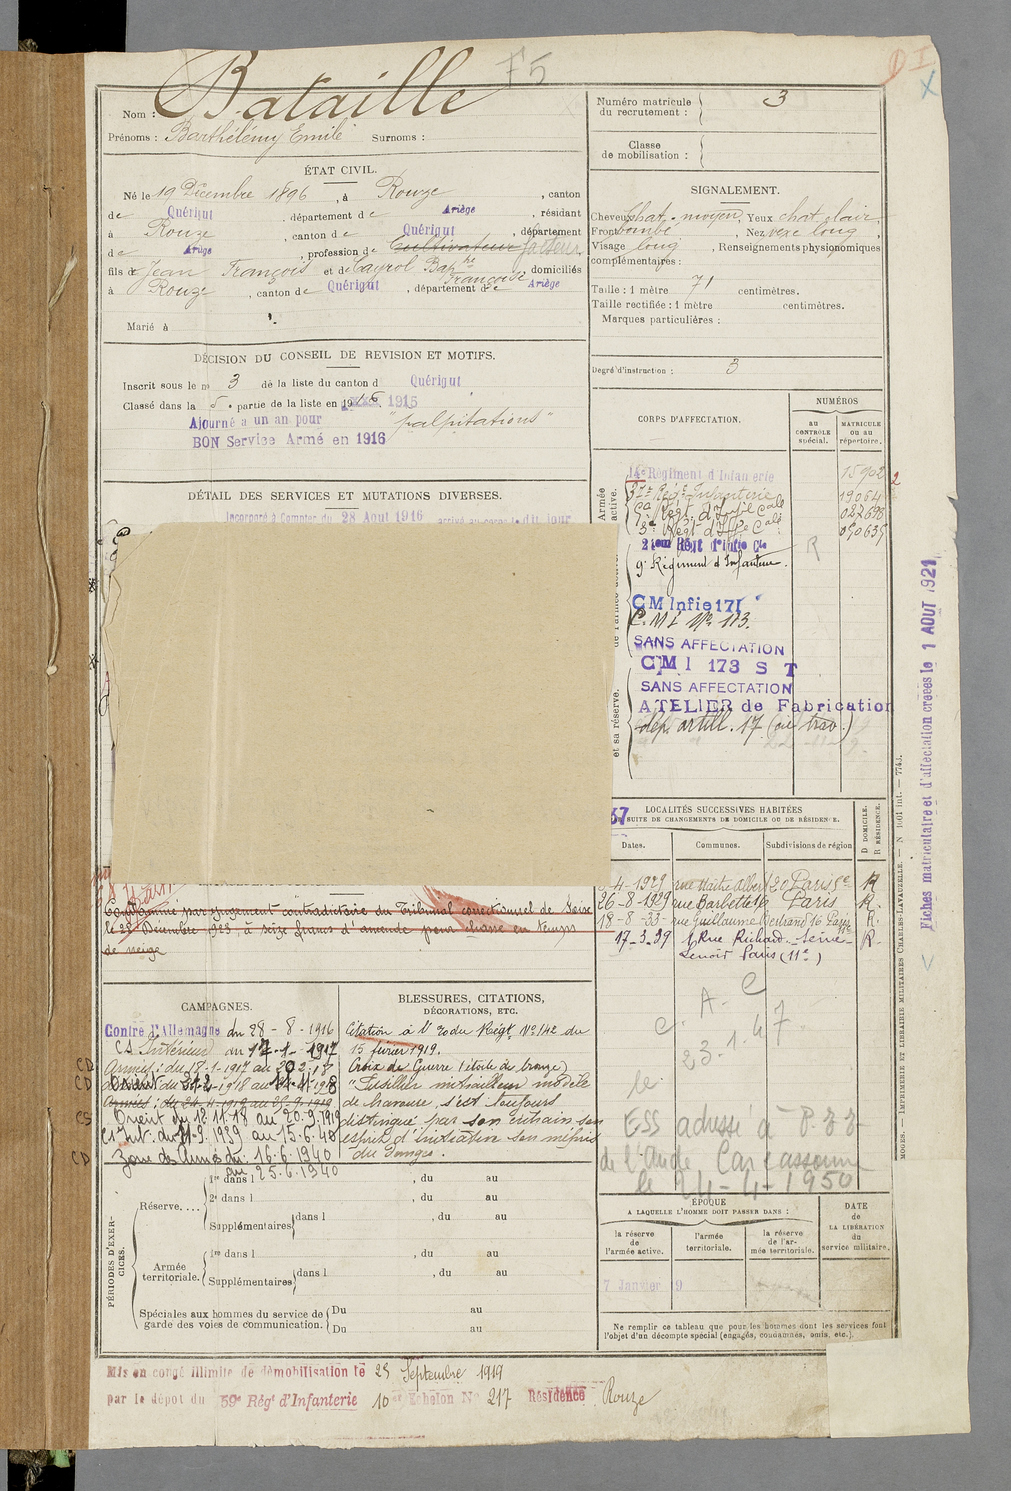 F5
Nom : Bataille
Prénoms : Barthélémy Emile Surnoms :
ÉTAT CIVIL.
Né le 19 Décembre 1896, à Rouze, canton
de Quérigut, département de Ariège, résidant
à Rouze, canton de Quérigut, département
de Ariège, profession de Cultivateur facteur
fils de Jean François et de Cayrol Bap the Françoise domiciliés
à Rouze, canton de Quérigut, département de Ariège
Marié à
DÉCISION DU CONSEIL DE REVISION ET MOTIFS.
Inscrit sous le no 3 de la liste du canton d Quérigut
Classé dans la 5e partie de la liste en 1916. 1915
Ajourné a un an pour "palpitations"
BON Service Armé en 1916
DÉTAIL DES SERVICES ET MUTATIONS DIVERSES.
Incorporé à Compter du 28 Aout 1916 arrivé au corps le dit jour
Condamné par jugement contradictoire du Tribunal correctionnel de
le 28 Décembre 1923, à seize francs d'amende pour chasse en temps
de neige
CAMPAGNES.
Contre l'Allemagne du 28-8-1916
CS Intérieur au 17-1-1917
Armées : du 18-1-1917 au
Orient du
Armées : du 24-4-1919 au 25-9-1919
Orient du 12.11.18 au 20.9.1919
Int. du 11-9.1939 au 15-6-40
Zone des Armées du 16.6.1940
au 25.6.1940
BLESSURES, CITATIONS,
DÉCORATIONS, ETC.
Citation à l'ordre du Régt No 142 du
15 février 1919.
Croix de Guerre (étoile de bronze)
"Fusilier mitrailleur modèle
de bravoure, s'est toujours
distingué par son entrain son
esprit d'initiative son mépris
du danger.
PÉRIODES D'EXERCICES.
Réserve....
1re dans l , du au
2e dans l , du au
Supplémentaires dans l , du au
Armée territoriale.
1re dans l , du au
Supplémentaires dans l , du au
Spéciales aux hommes du service de garde des voies de communication.
Du au
Du au
Mis en congé illimité de démobilisation le 25 Septembre 1919
par le dépôt du 59e Régt d'Infanterie 10e Echelon No 217 Résidence Rouze
Numéro matricule du recrutement : 3
Classe de mobilisation :
SIGNALEMENT.
Cheveux chat. moyen, Yeux chat clair
Front bombé, Nez vexe long,
Visage long, Renseignements physionomiques
complémentaires :
Taille : 1 mètre 71 centimètres.
Taille rectifiée : 1 mètre centimètres.
Marques particulières :
Degré d'instruction : 3
CORPS D'AFFECTATION.
NUMÉROS
au CONTRÔLE spécial.
MATRICULE ou au répertoire.
Armée active.
14e Régiment d'Infanterie 15902
Régt Infanterie 19064
Régt d'Infie Cale 022698
3e Régt d'Infie Cale 050635
2ème Régt d'Infie Cle
9e Régiment d'Infanterie.
et sa réserve.
CM Infie 171
C.M I No 173.
SANS AFFECTATION
CMI 173 S T
SANS AFFECTATION
ATELIER de Fabrication
dep. artill. 17 (ou trav.)
R
LOCALITÉS SUCCESSIVES HABITÉES
PAR SUITE DE CHANGEMENTS DE DOMICILE OU DE RÉSIDENCE.
Dates. Communes. Subdivisions de région
D DOMICILE.
R RÉSIDENCE.
4-1929 rue Maitre Albert 20 Paris 5e R
26-8-1929 rue Barbette 16 Paris R.
18-8-33 rue Guillaume Bertrand 16 Paris 11e R.
17-3-39 1 Rue Richard Seine R.
Lenoir Paris (11e)
A-C
23.1.47
le
ESS adressé à
de l'Aude Carcassonne
le 24-4-1950
ÉPOQUE
A LAQUELLE L'HOMME DOIT PASSER DANS :
la réserve de l'armée active.
l'armée territoriale.
la réserve de l'armée territoriale.
DATE de LA LIBÉRATION du service militaire.
7 Janvier 19
Ne remplir ce tableau que pour les hommes dont les services font
l'objet d'un décompte spécial (engagés, condamnés, omis, etc.).
Fiches matriculaire et d'affectation créées le 1 AOUT 1921
LIMOGES. — IMPRIMERIE ET LIBRAIRIE MILITAIRES CHARLES-LAVAUZELLE. — N° 1001 int. — 7743.